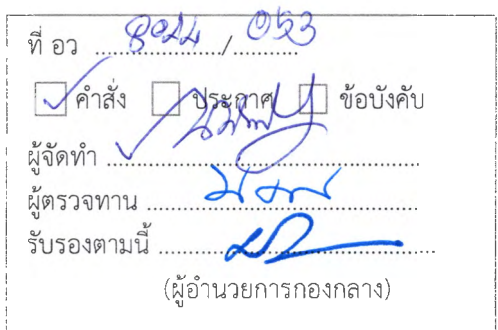 ที่ อว ........ / 053
☑ คำสั่ง ☐ ประกาศ ☐ ข้อบังคับ
ผู้จัดทำ
ผู้ตรวจทาน
รับรองตามนี้
(ผู้อำนวยการกองกลาง)